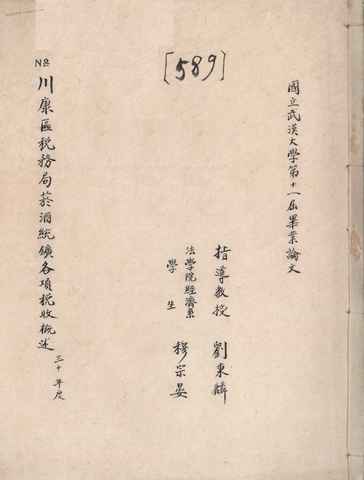 國立武漢大學第十一屆畢業論文
[589]
指導教授 劉東麟
法學院經濟系
學生 穆宗晏
No.
川康區稅務局菸酒統鑛各項稅收概述 三十年度